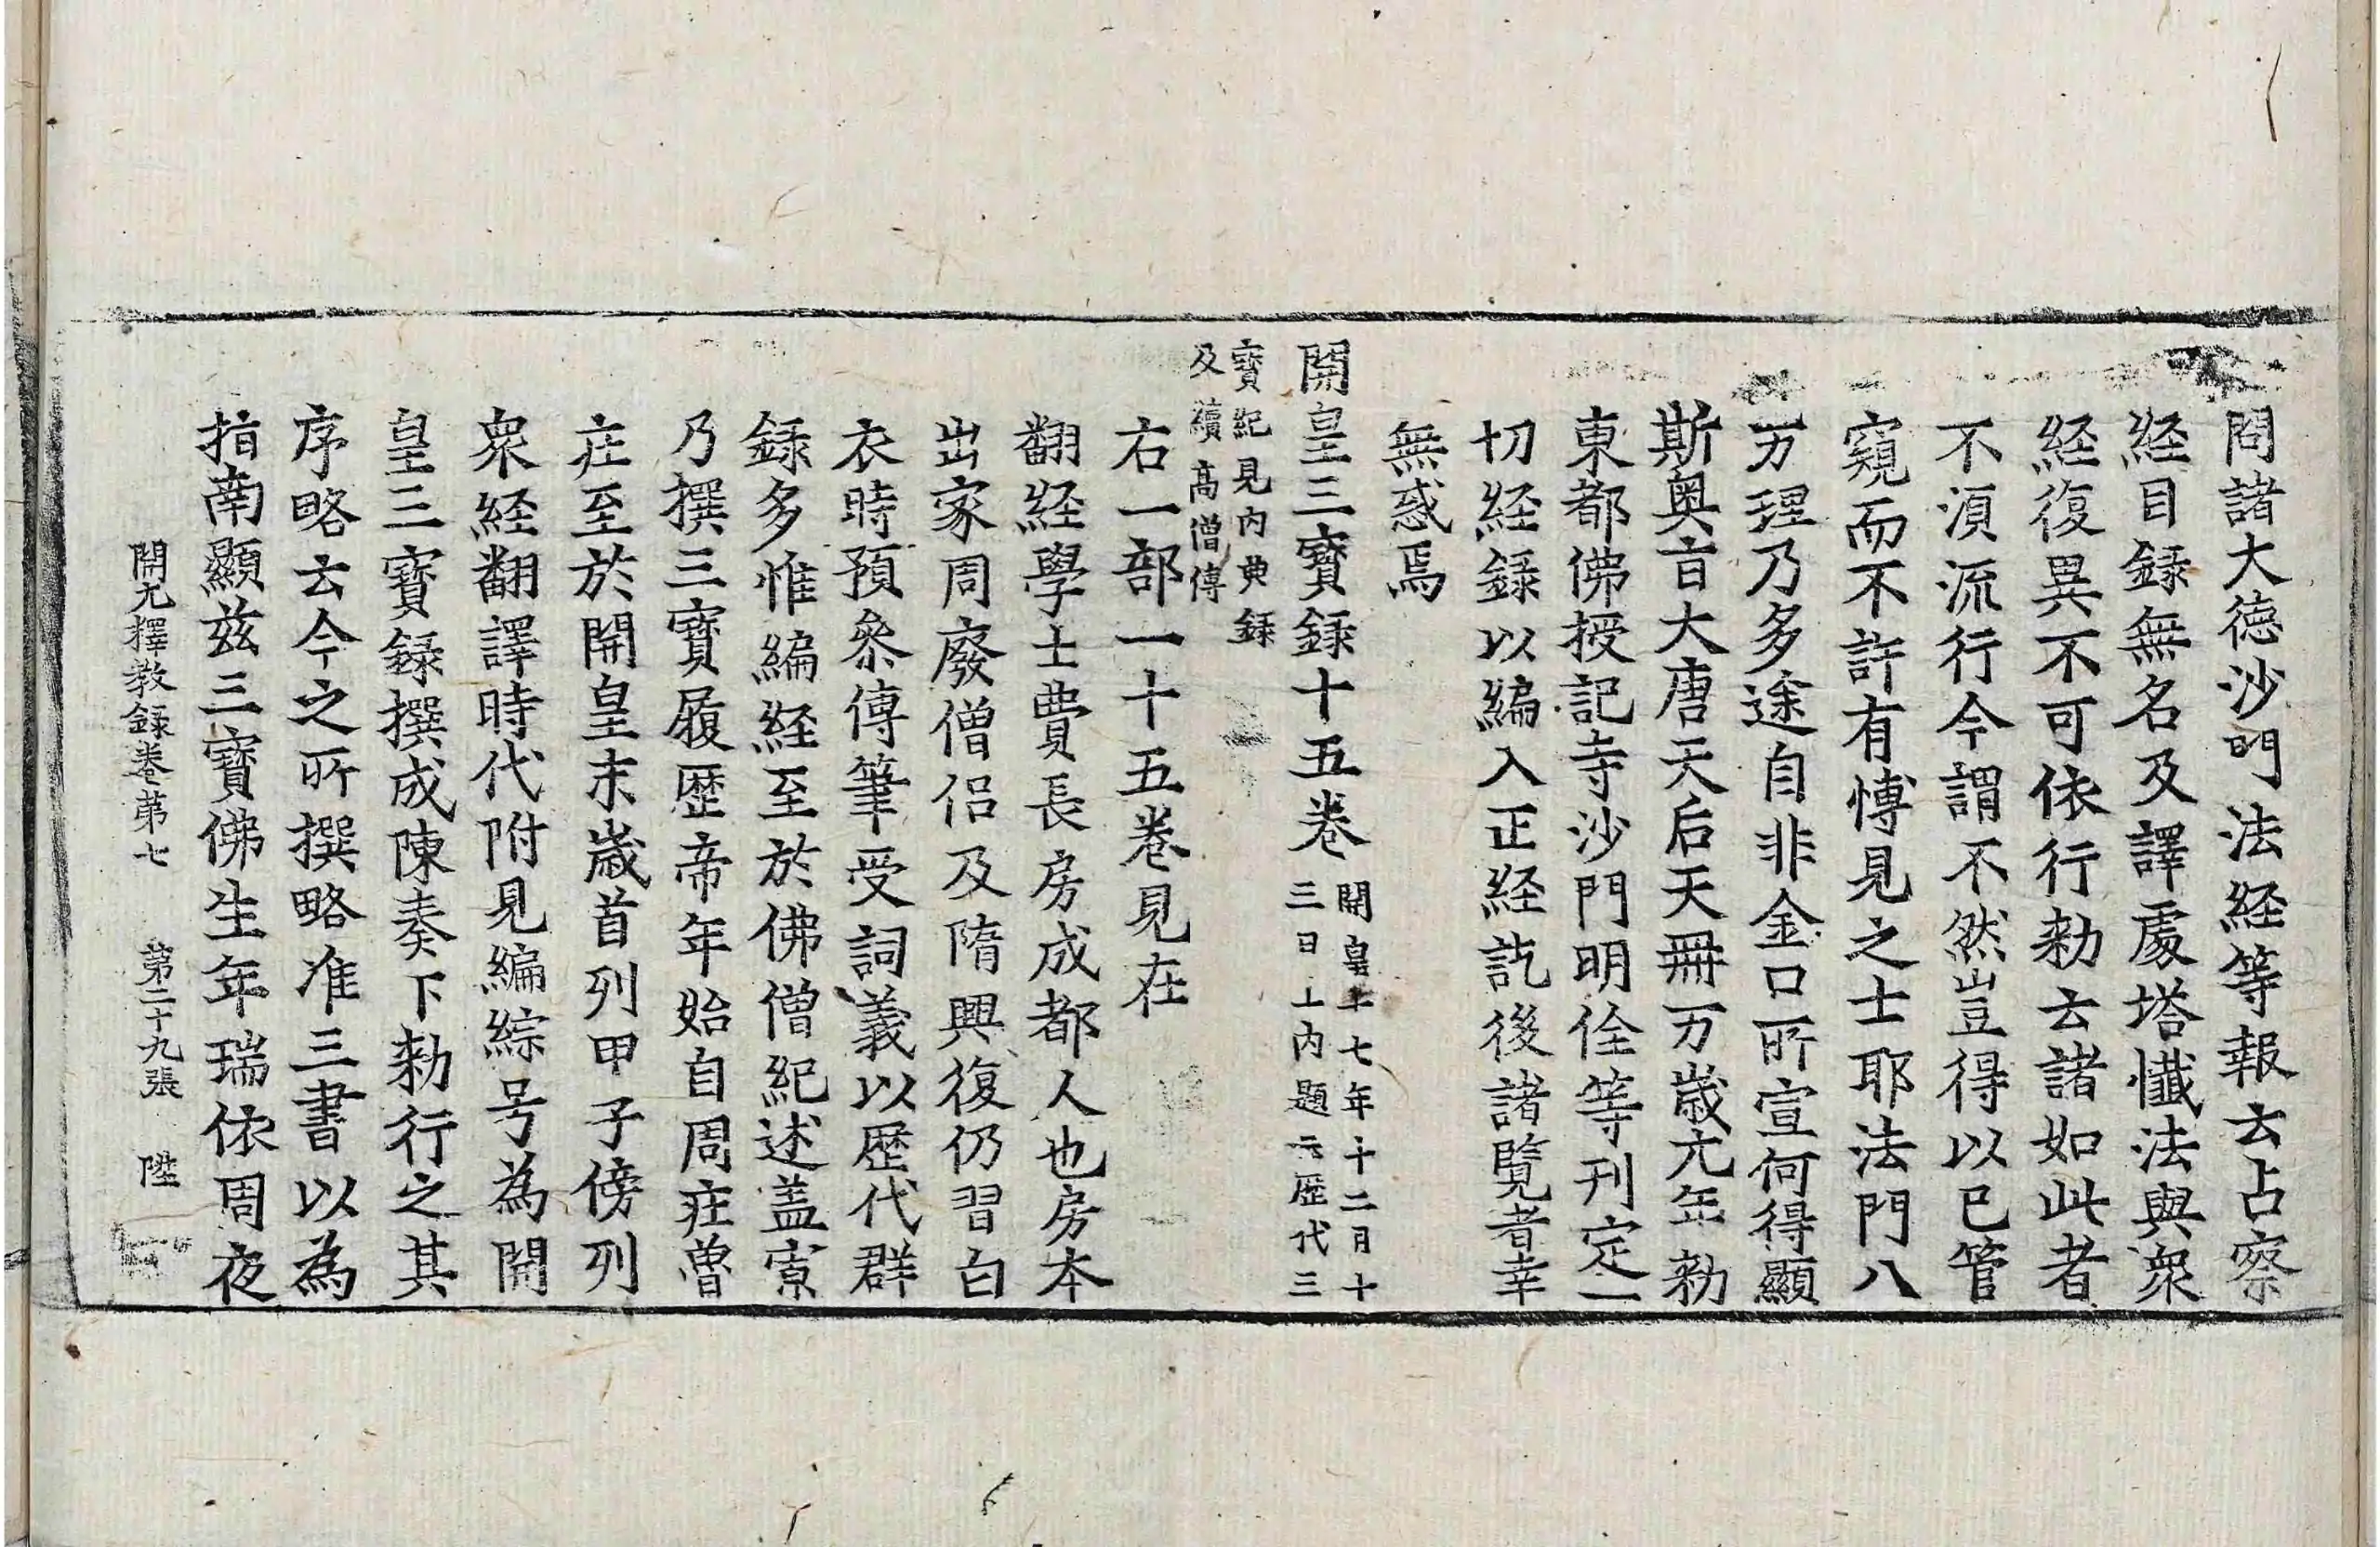 問諸大德沙門法経等報云占察
経目録無名及譯處塔懺法與衆
経復異不可依行勑云諸如此者
不湏流行今謂不然豈得以已管
窺而不許有博見之士耶法門八
万理乃多途自非金口所宣何得顯
斯奥言大唐天后天冊万歲元年勑
東都佛授記寺沙門明佺等刊定一
切経録以編入正経訖後諸覽者幸
無惑焉
開皇三寶録十五卷
開皇十七年十二月十
三日上内題云歷代三
寶紀見内典録
及續高僧傳
右一部一十五卷見在
翻経學士費長房成都人也房本
出家周廢僧侣及隋興復仍習白
衣時預叅傳筆受詞義以歷代群
録多惟編経至於佛僧紀述盖寡
乃撰三寶履歷帝年始自周莊魯
莊至於開皇末歲首列甲子傍列
衆経翻譯時代附見編綜号為開
皇三寶録撰成陳奏下勑行之其
序略云今之所撰略准三書以為
指南顯兹三寶佛生年瑞依周夜
開元釋教録卷第七 第二十九張 陞